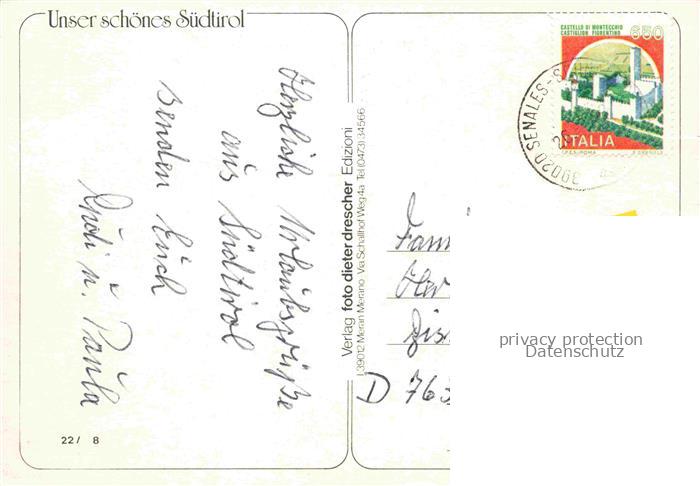 Unser schönes Südtirol
Herzliche Urlaubsgrüße
aus Südtirol
senden Euch
Rudi u. Paula
22/ 8
Verlag foto dieter drescher Edizioni
I 39012 Meran Merano · Via Schallhof Weg 4a · Tel (0473) 34566
CASTELLO DI MONTECCHIO
CASTIGLION FIORENTINO
650
ITALIA
I.P.Z.S. ROMA
39020 SENALES-S
Fam
D 763
privacy protection
Datenschutz